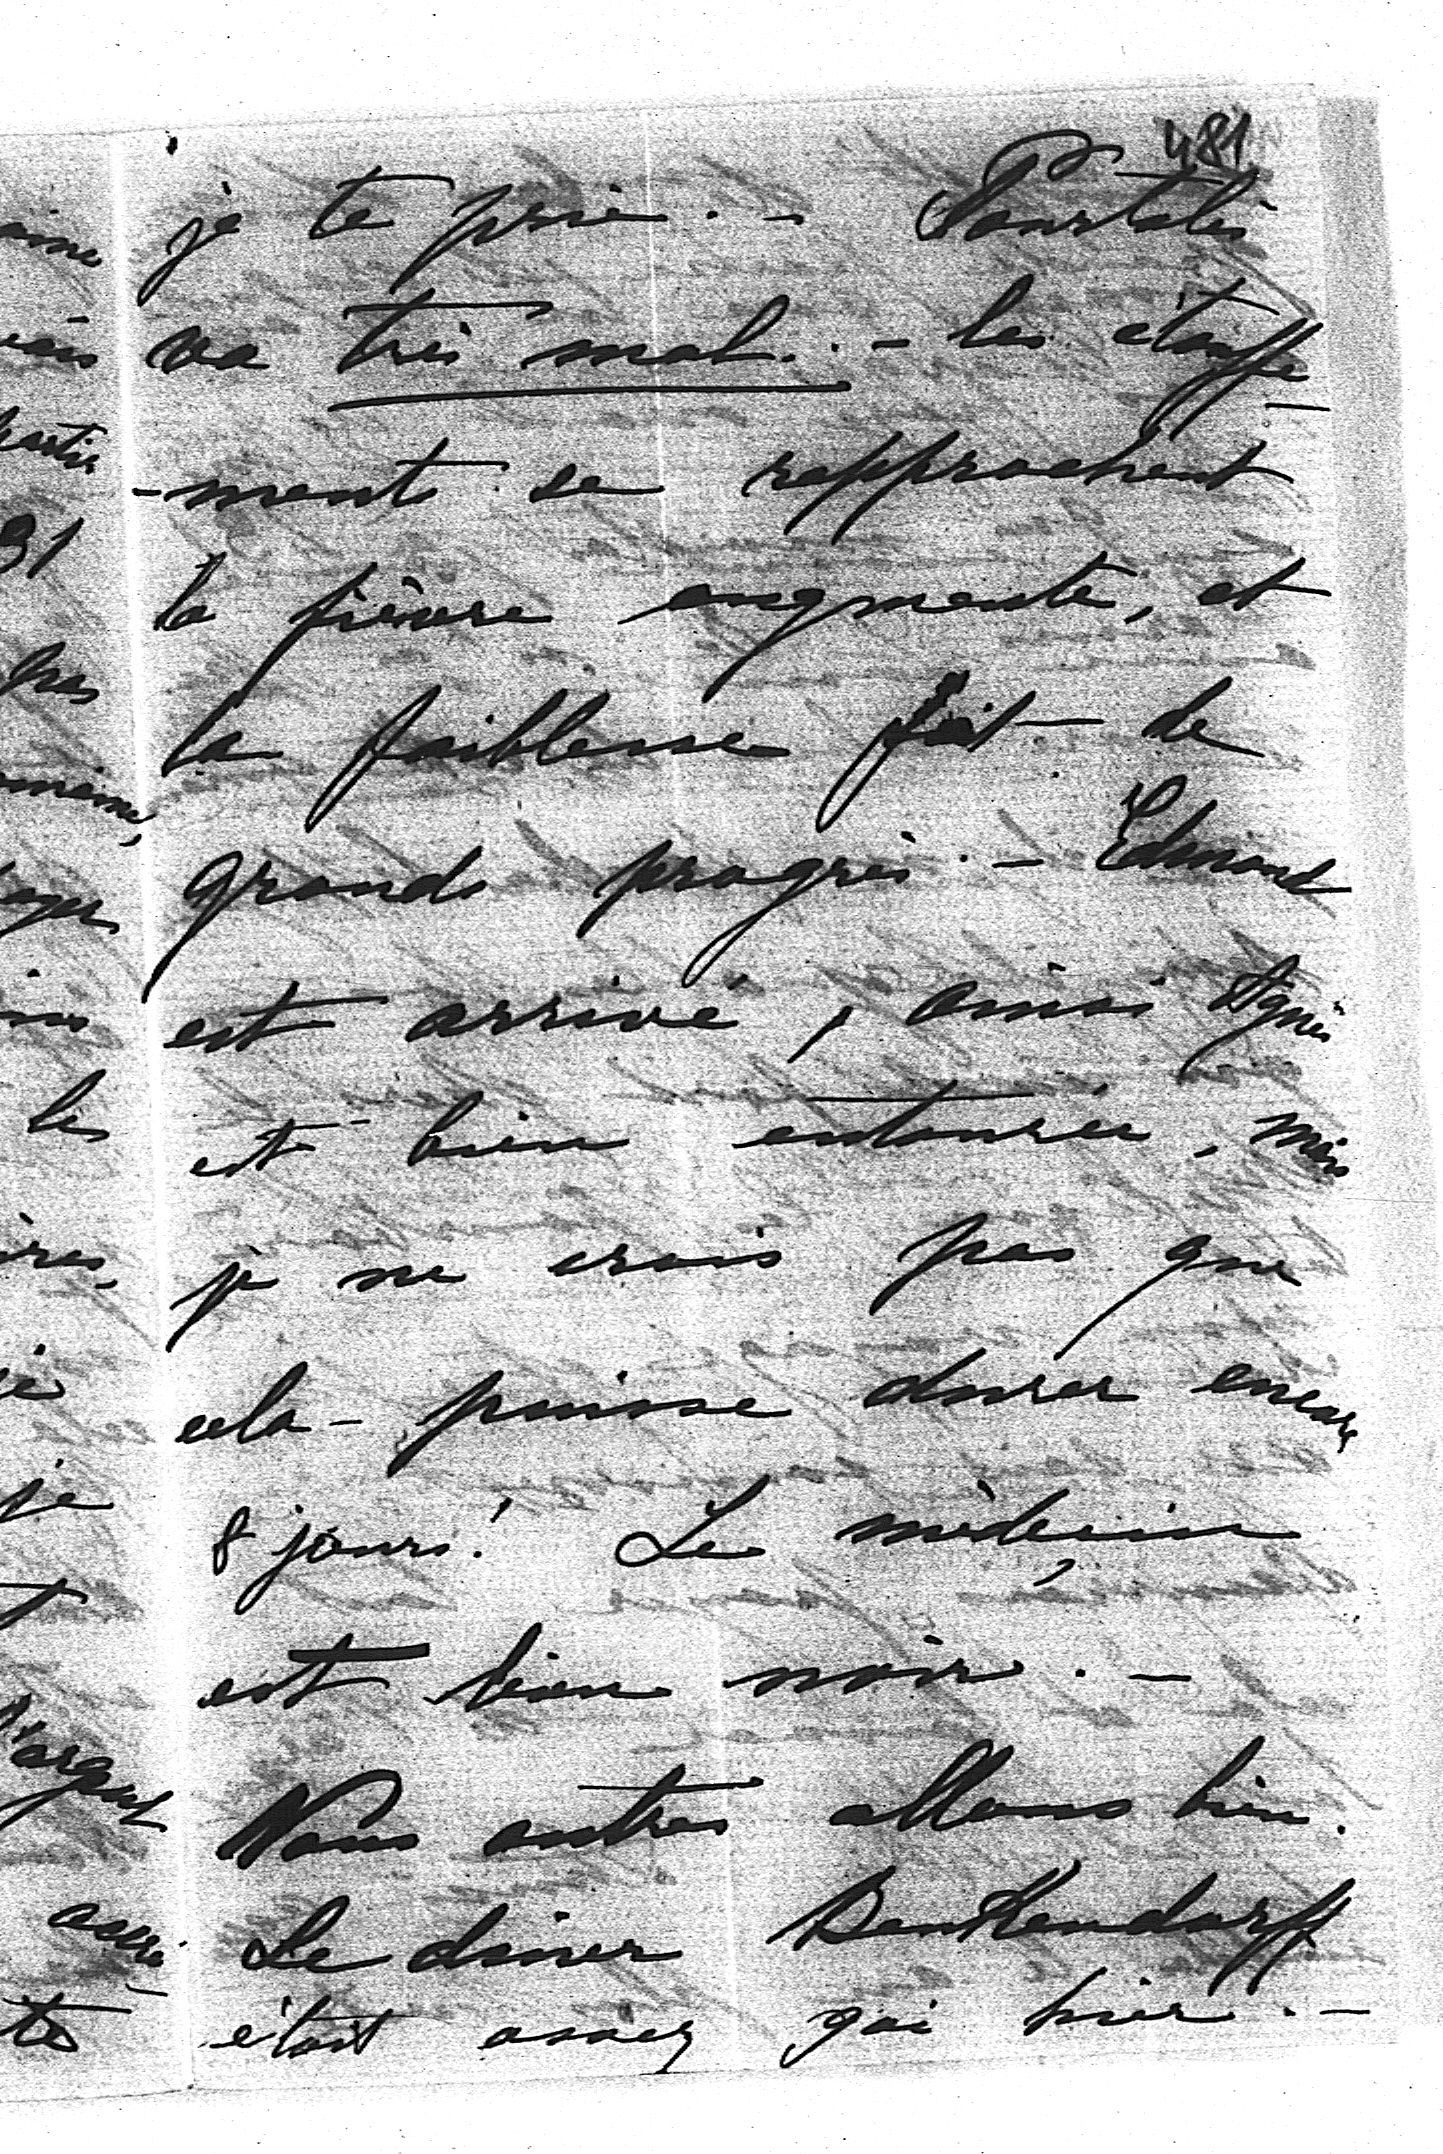 481
je te prie. - Pourtalès
va très mal.. - les étouffe-
-ments se rapprochent
la fièvre augmente, et
la faiblesse fait de
grands progrès. - Edmond
est arrivé, ainsi Agnès
est bien entourée, mais
je ne crois pas que
cela puisse durer encore
8 jours! Le médecin
est bien noir. -
Nous autres allons bien.
Le diner Benkendorff
était assez gai hier. -
31
les
je